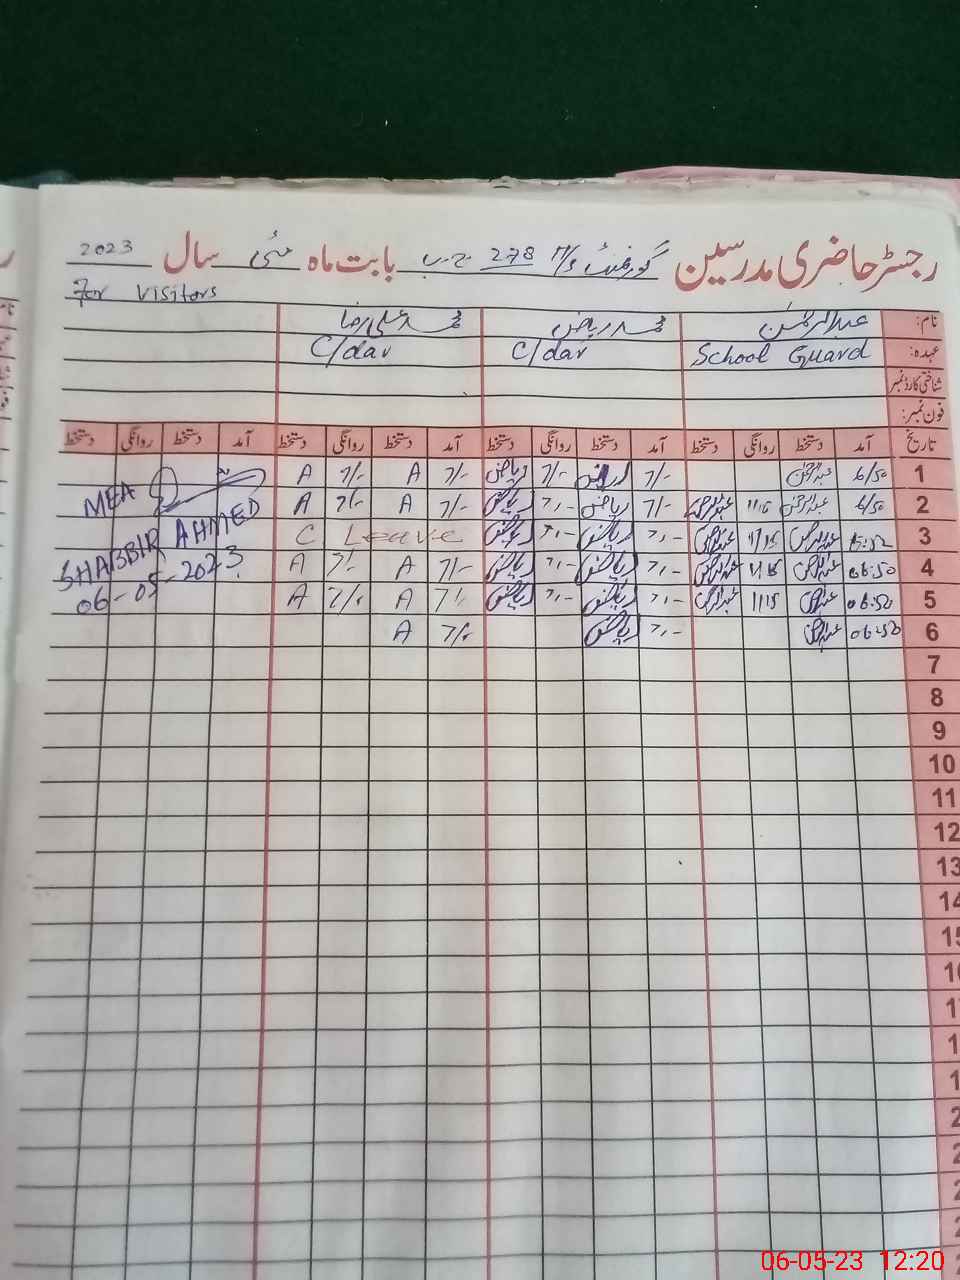 رجسٹر حاضری مدرسین گورنمنٹ M/S 278 ج۔ب بابت ماہ مئی سال 2023
For Visitors
نام: عبدالرحمٰن محمد ریاض محمد علی رضا
عہدہ: School Guard C/dar C/dar
شناختی کارڈ نمبر
فون نمبر:
تاریخ آمد دستخط روانگی دستخط آمد دستخط روانگی دستخط آمد دستخط روانگی دستخط آمد دستخط روانگی دستخط
1 6/50 عبدالرحمٰن 7/- ریاض 7/- ریاض 7/- A 7/- A
2 6/50 عبدالرحمٰن 11:15 عبدالرحمٰن 7/- ریاض 7/- ریاض 7/- A 7/- A
3 عبدالرحمٰن 11/15 عبدالرحمٰن 7/- ریاض 7/- ریاض C Leave
4 06:50 عبدالرحمٰن 11/15 عبدالرحمٰن 7/- ریاض 7/- ریاض 7/- A 7/- A
5 06:50 عبدالرحمٰن 11/15 عبدالرحمٰن 7/- ریاض 7/- ریاض 7/- A 7/- A
6 06:50 عبدالرحمٰن 7/- ریاض 7/- A
MEA
SHABBIR AHMED
06-05-2023
7
8
9
10
11
12
13
14
15
06-05-23 12:20